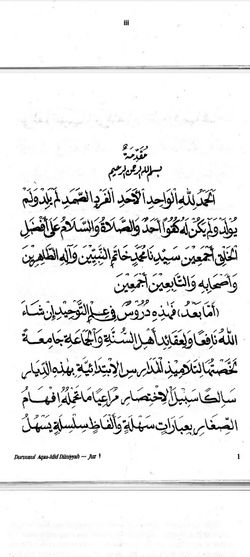 iii
مُقَدِّمَةٌ
بسم الله الرحمن الرحيم
اَلْحَمْدُ لِلّٰهِ الْوَاحِدِ الْأَحَدِ الْفَرْدِ الصَّمَدِ لَمْ يَلِدْ وَلَمْ
يُوْلَدْ وَلَمْ يَكُنْ لَهُ كُفُوًا أَحَدٌ وَالصَّلَاةُ وَالسَّلَامُ عَلَى أَفْضَلِ
الْخَلْقِ أَجْمَعِيْنَ سَيِّدِنَا مُحَمَّدٍ خَاتَمِ النَّبِيِّيْنَ وَآلِهِ الطَّاهِرِيْنَ
وَأَصْحَابِهِ وَالتَّابِعِيْنَ أَجْمَعِيْنَ
(أَمَّا بَعْدُ) فَهٰذِهِ دُرُوْسٌ فِي عِلْمِ التَّوْحِيْدِ إِنْ شَاءَ
اللهُ نَافِعَةٌ وَلِعَقَائِدِ أَهْلِ السُّنَّةِ وَالْجَمَاعَةِ جَامِعَةٌ
لَخَّصْتُهَا لِتَلَامِيْذِ الْمَدَارِسِ الْإِبْتِدَائِيَّةِ بِهٰذِهِ الدِّيَارِ
سَالِكًا سَبِيْلَ الْإِخْتِصَارِ مُرَاعِيًا مَا تَحْمِلُهُ إِفْهَامُ
الصِّغَارِ بِعِبَارَاتٍ سَهْلَةٍ وَأَلْفَاظٍ سَلِسَلَةٍ يَسْهُلُ
Duruusul Aqaa-idid Diiniyyah — Juz ١ 1